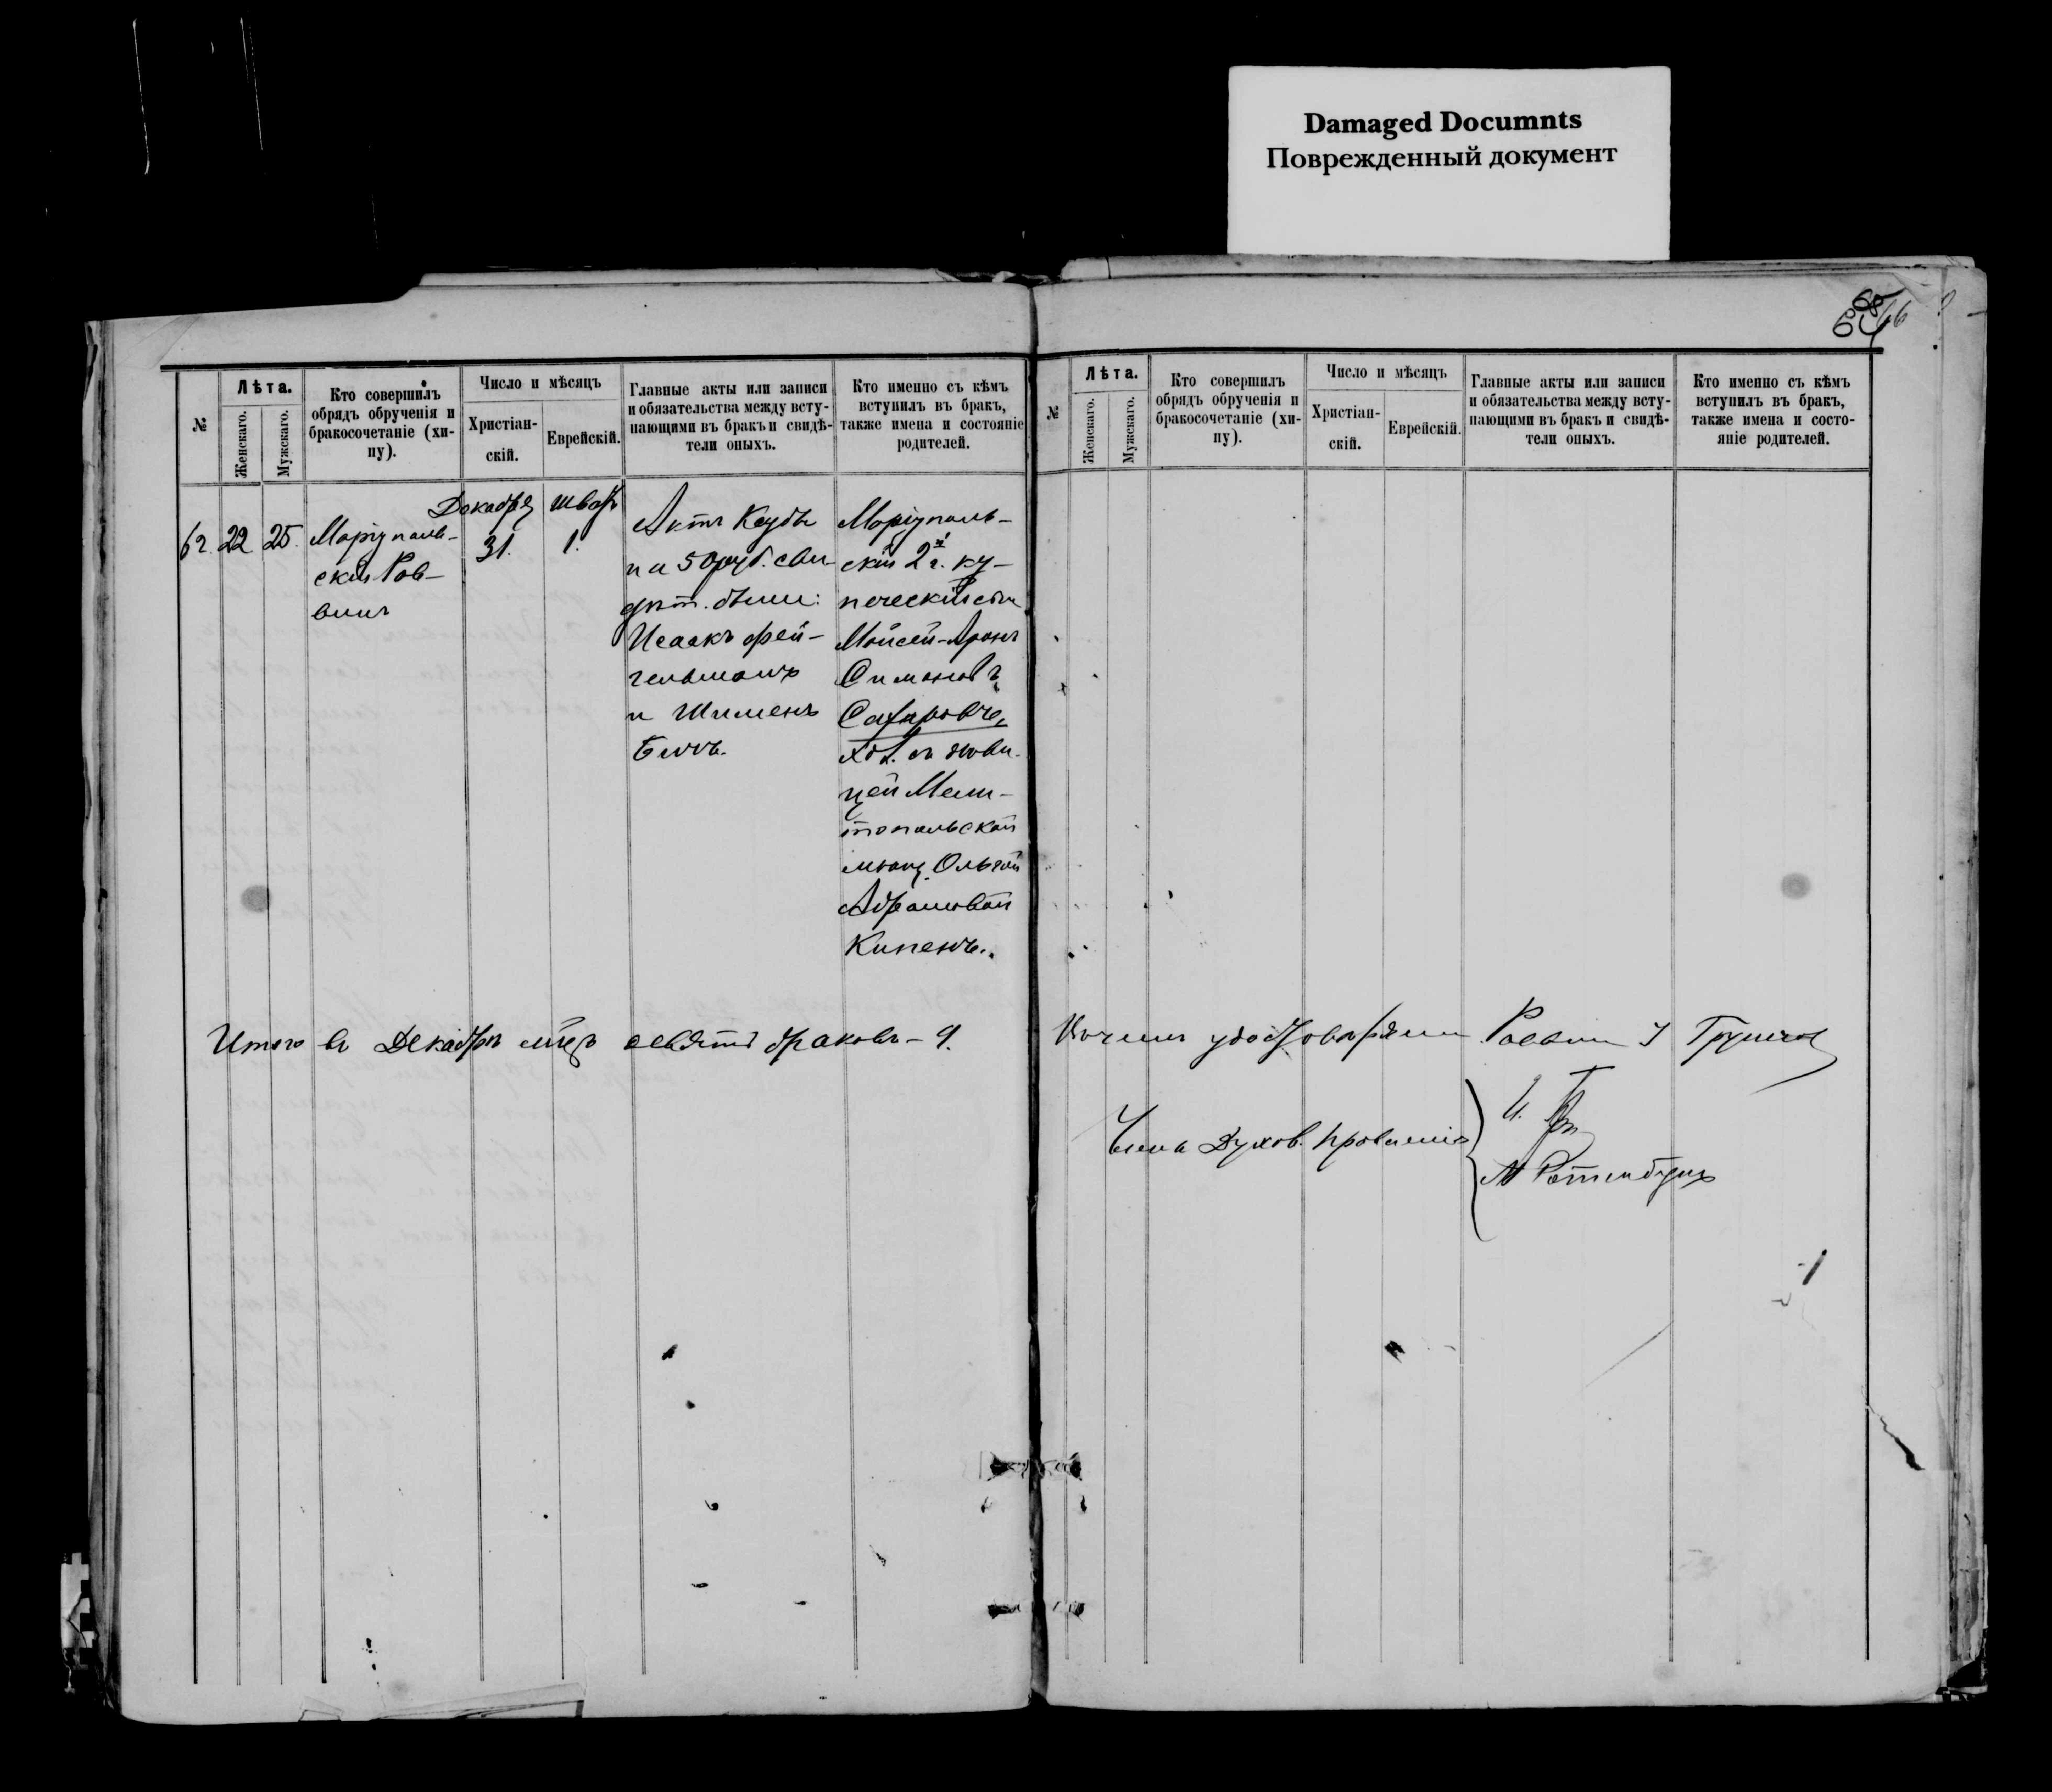 Damaged Documnts
Поврежденный документ
66
№
Лѣта.
Женскаго.
Мужскаго.
Кто совершилъ
обрядъ обрученія и
бракосочетаніе (хи-
пу).
Число и мѣсяцъ
Христіан-
скій.
Еврейскій.
Главные акты или записи
и обязательства между всту-
пающими въ бракъ и свидѣ-
тели оныхъ.
Кто именно съ кѣмъ
вступилъ въ бракъ,
также имена и состояніе
родителей.
62. 22 25.
Маріуполь-
скій Рав-
винъ
Декабря
31.
1.
Актъ Кесубы
на 50 руб. сви-
дѣт. были:
Исаакъ Фей-
гельманъ
и Шименъ
Маріуполь-
скій 2й г. ку-
печескій сынъ
Мойсей-Аронъ
Симоновъ
съ дѣви-
цей Мели-
топольской
мѣщ. Ольгой
Абрамовой
Кипенъ.
Итого въ Декабрѣ м-цѣ девять браковъ - 9.
№
Лѣта.
Женскаго.
Мужскаго.
Кто совершилъ
обрядъ обрученія и
бракосочетаніе (хи-
пу).
Число и мѣсяцъ
Христіан-
скій.
Еврейскій.
Главные акты или записи
и обязательства между всту-
пающими въ бракъ и свидѣ-
тели оныхъ.
Кто именно съ кѣмъ
вступилъ въ бракъ,
также имена и состо-
яніе родителей.
удостовѣряемъ Раввинъ
Члены Духов. Правленія